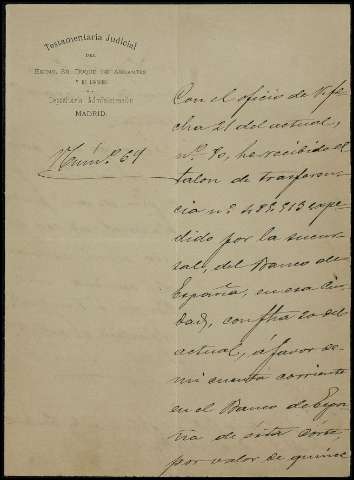 Testamentaria Judicial
DEL
EXCMO. SR. DUQUE DE ABRANTES
Y DE LINARES
Depositaría Administración
MADRID.
Núm.º 69
Con el oficio de V. fe-
cha 21 del actual,
nº 80, he recibido el
talon de trasferen-
cia nº 489.913 expe-
dido por la sucur-
sal, del Banco de
España, en esa Ciu-
dad, con fha 20 del
actual, á favor de
mi cuenta corriente
en el Banco de Espa-
ña de ésta córte,
por valor de quince